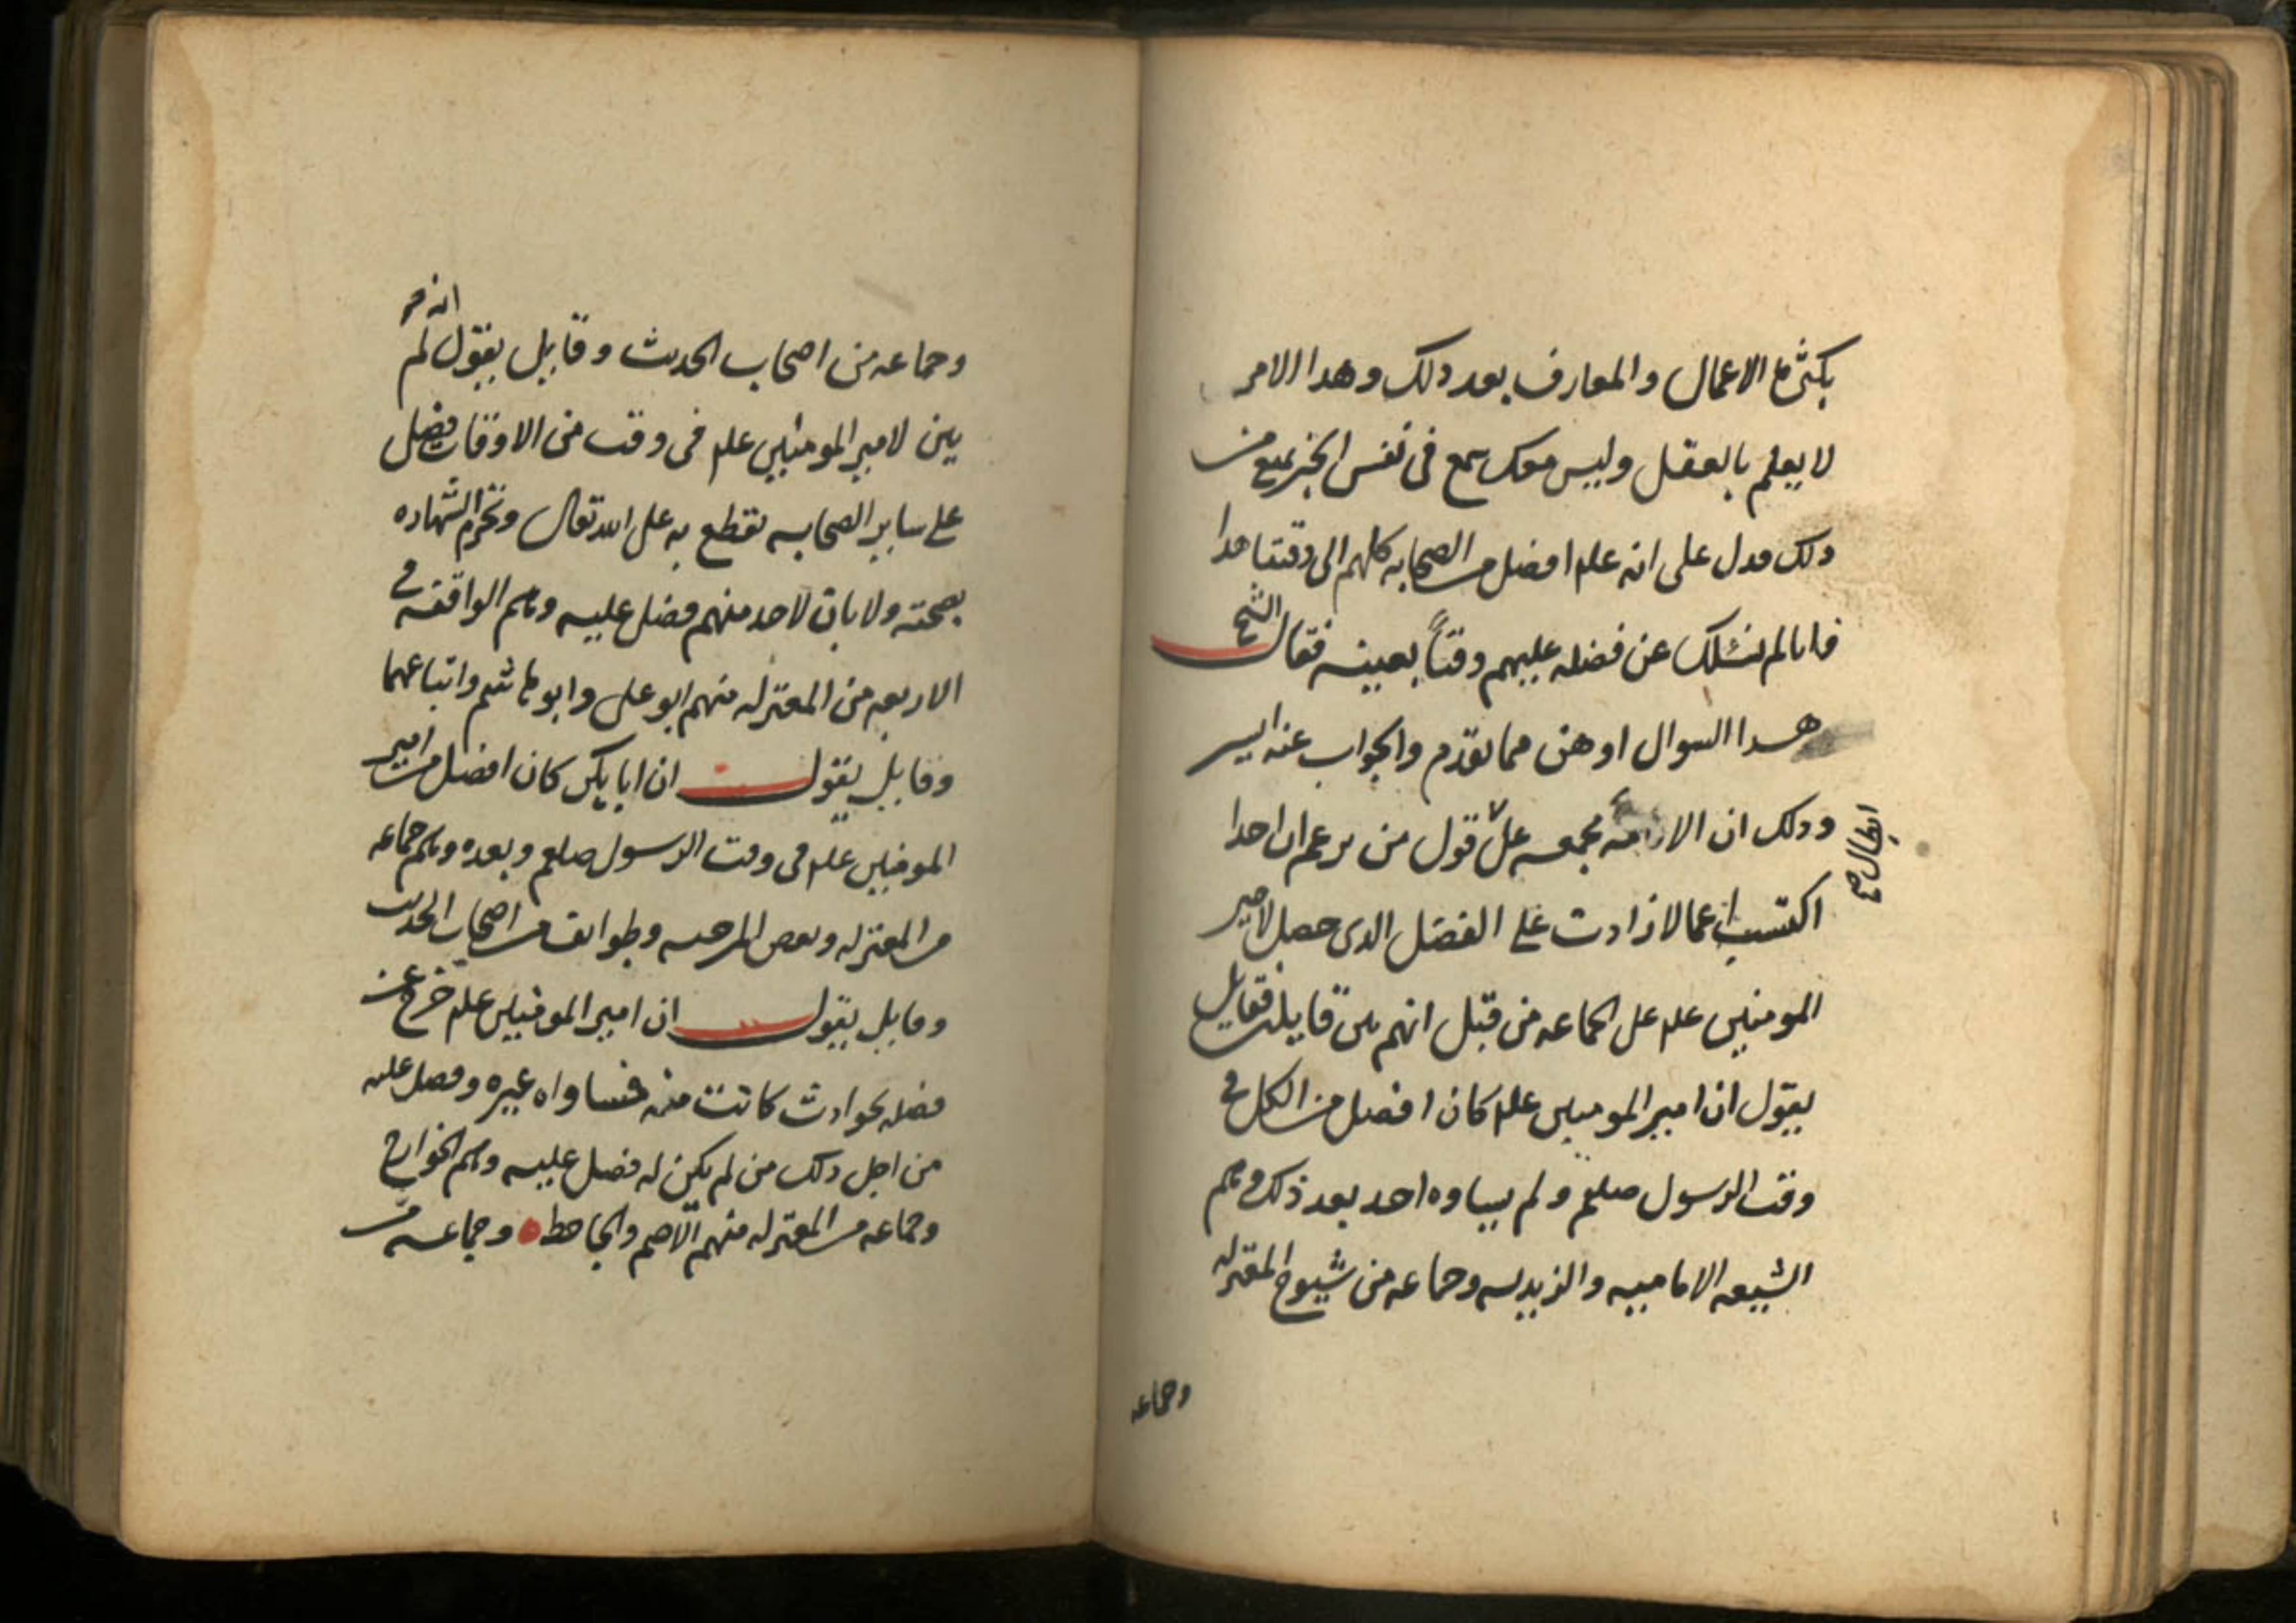 بكثرها الاعمال والمعارف بعد دلك وهدا الامر
لا يعلم بالعقل وليس معك سمع فى نفس الخبر يمنع من
دلك فدل على انه علم افضل من الصحابه كلهم الى وقتنا هدا
فانا لم نسئلك عن فضله عليهم وقتاً بعينه فقال الشيخ
هدا السوال اوهن مما تقدم والجواب عنه ايسر
ودلك ان الامة مجمعه على قول من يزعم ان احدا
ابطال صح
اكتسب اعمالا زادت على الفضل الدى حصل لامير
المومنين علم على الجماعه من قبل انهم بين قايلين فقايل
يقول ان امير المومنين علم كان افضل من الكل فى
وقت الرسول صلعم ولم يساوه احد بعد ذلك وهم
الشيعه الاماميه والزيديه وجماعه من شيوخ المعتزله
وجماعه
وجماعه من اصحاب الحديث وقايل يقول انه لم
يبن لامير المومنين علم فى وقت من الاوقات فضل
على ساير الصحابه نقطع به على الله تعالى ونجزم الشهاده
بصحته ولا بان لاحد منهم فضل عليه وهم الواقفه فى
الاربعه من المعتزله منهم ابو على وابو هاشم واتباعهما
وقايل يقول ان ابا بكر كان افضل من امير
المومنين علم فى وقت الرسول صلعم وبعده وهم جماعه
من المعتزله وبعض المرجيه وطوايف من اصحاب الحديث
وقايل يقول ان امير المومنين علم خرج عن
فضله بحوادث كانت منه فساواه غيره وفضل عليه
من اجل دلك من لم يكن له فضل عليه وهم الخوارج
وجماعه من المعتزله منهم الاصم والجاحظ وجماعه من